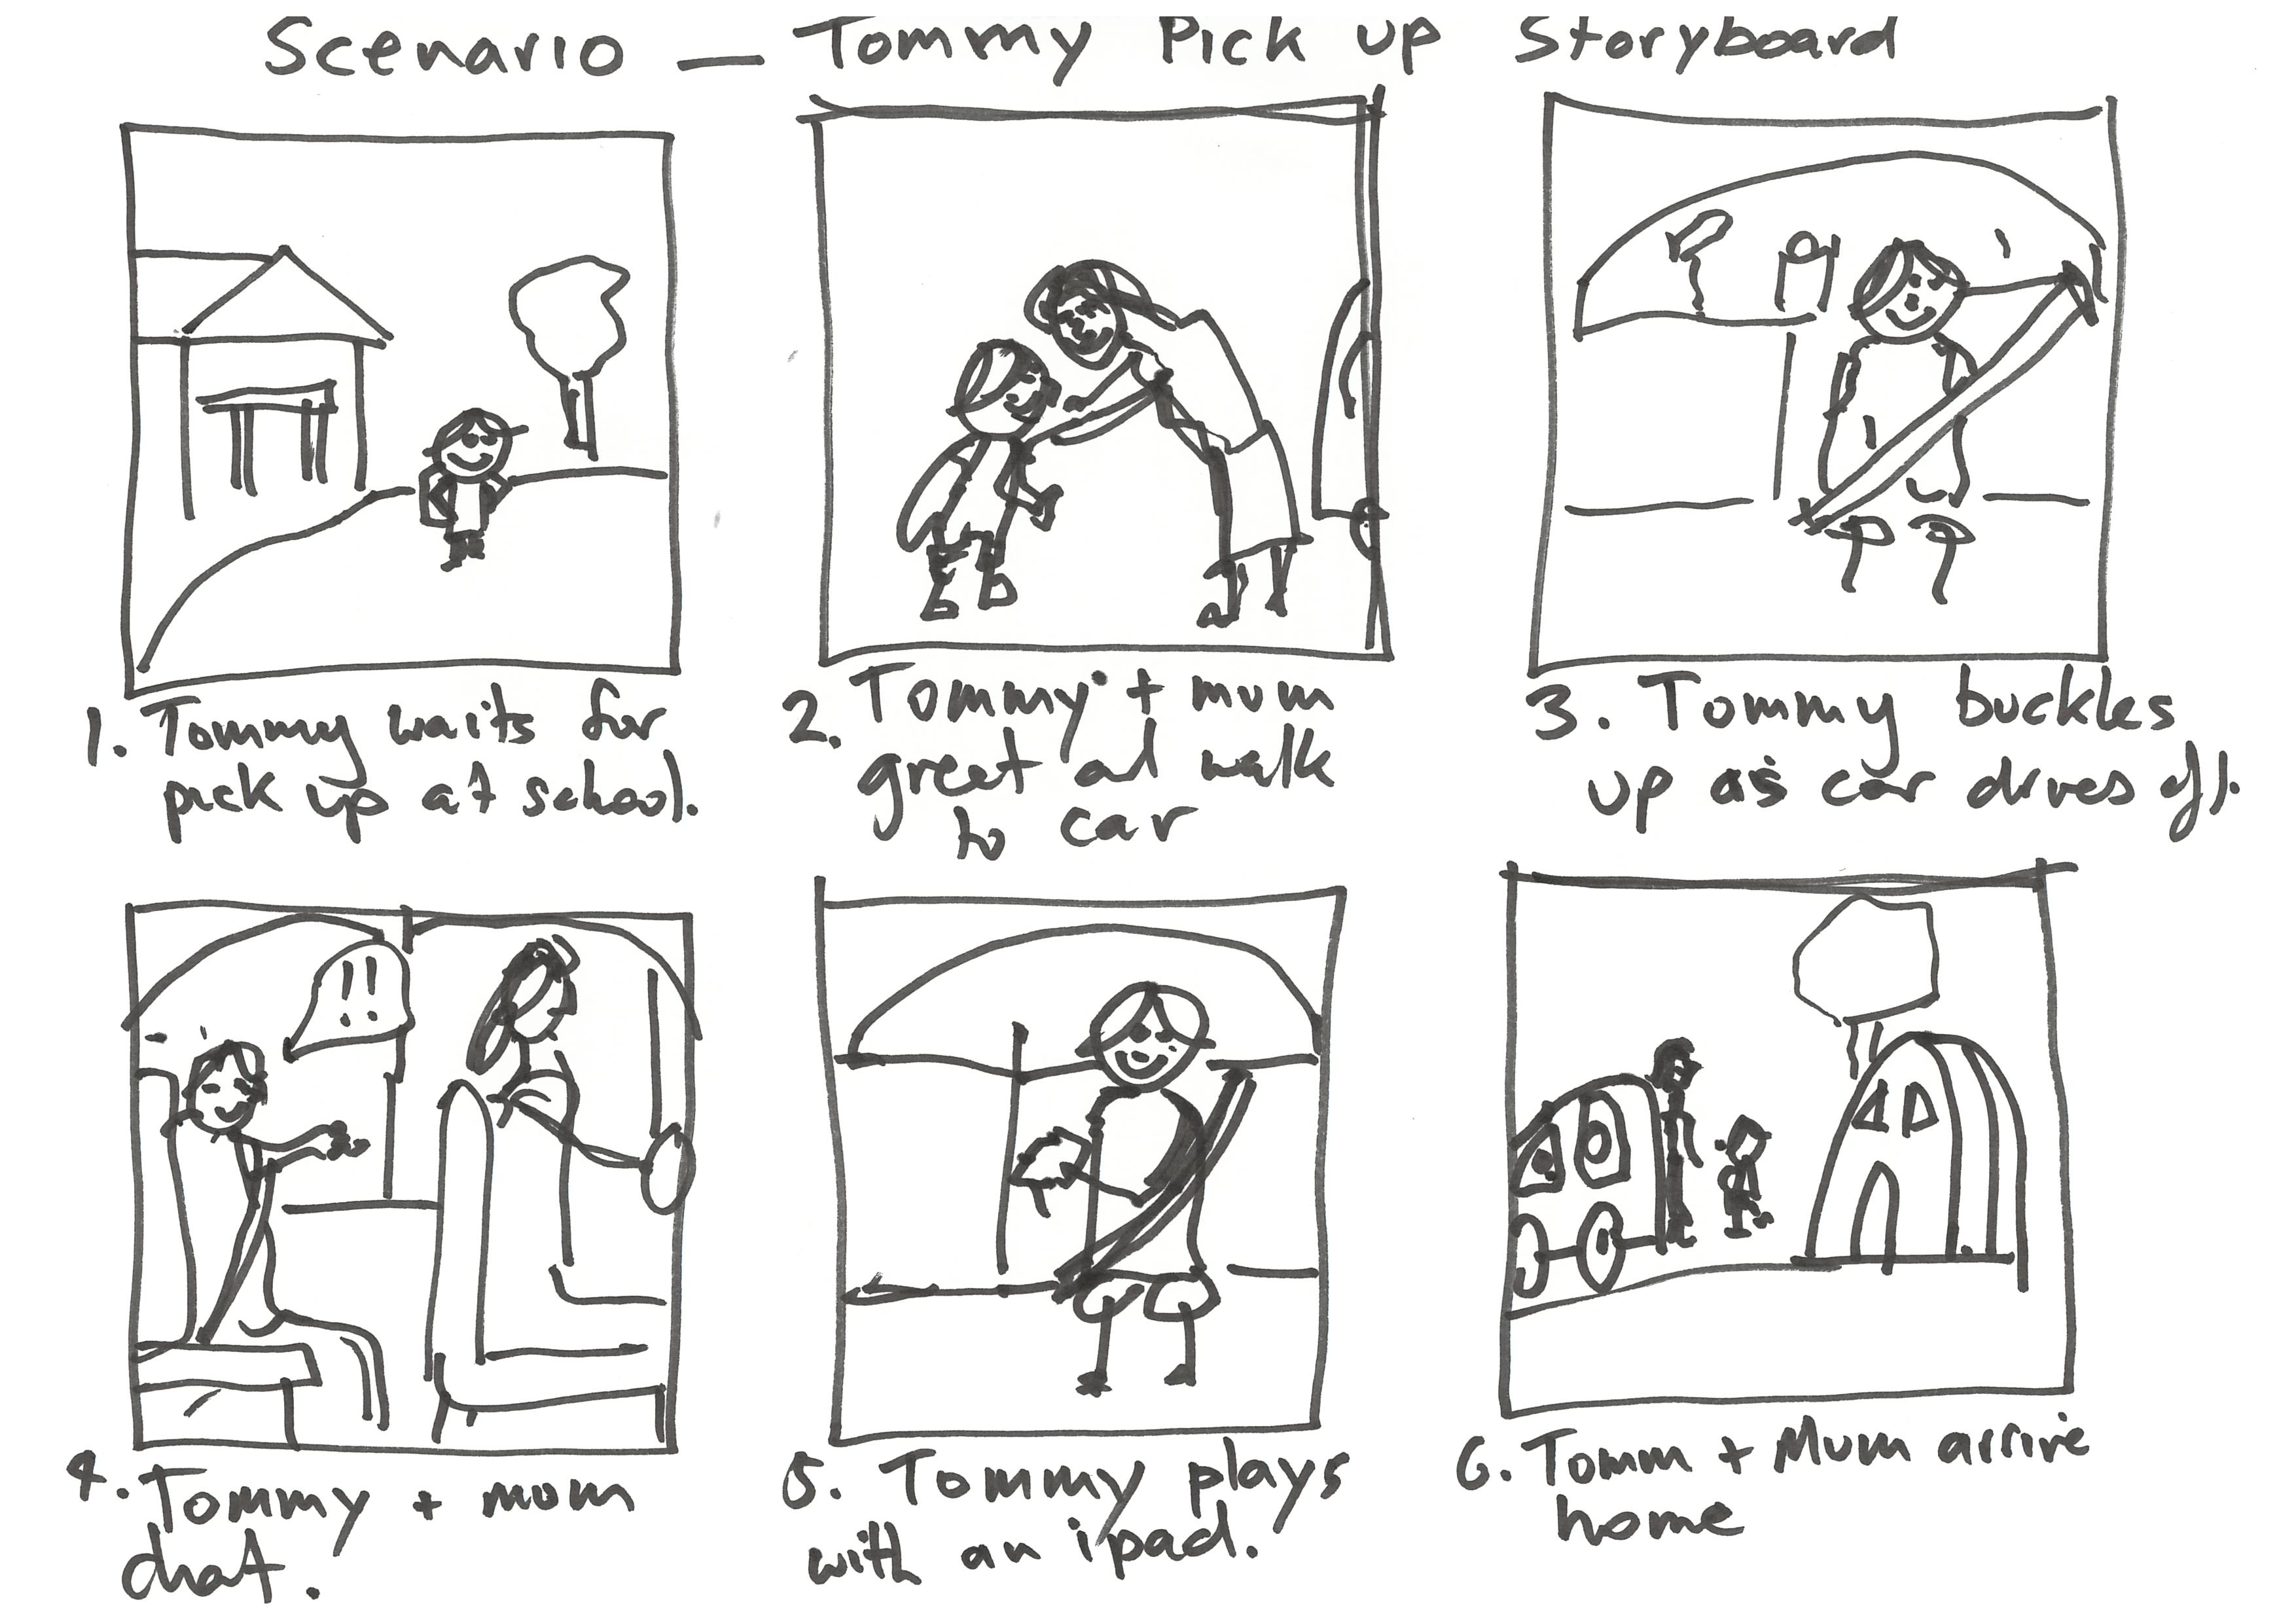 Scenario — Tommy Pick up Storyboard
1. Tommy waits for
pick up at school.
2. Tommy + mum
greet ad walk
to car
3. Tommy buckles
up as car drives off.
4. Tommy + mum
chat.
5. Tommy plays
with an ipad.
6. Tomm + Mum arrive
home
!!